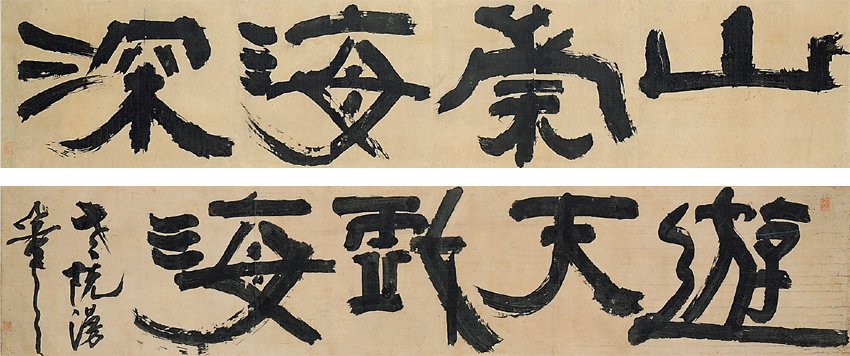 山崇海深
遊天戱海
老阮漫
筆